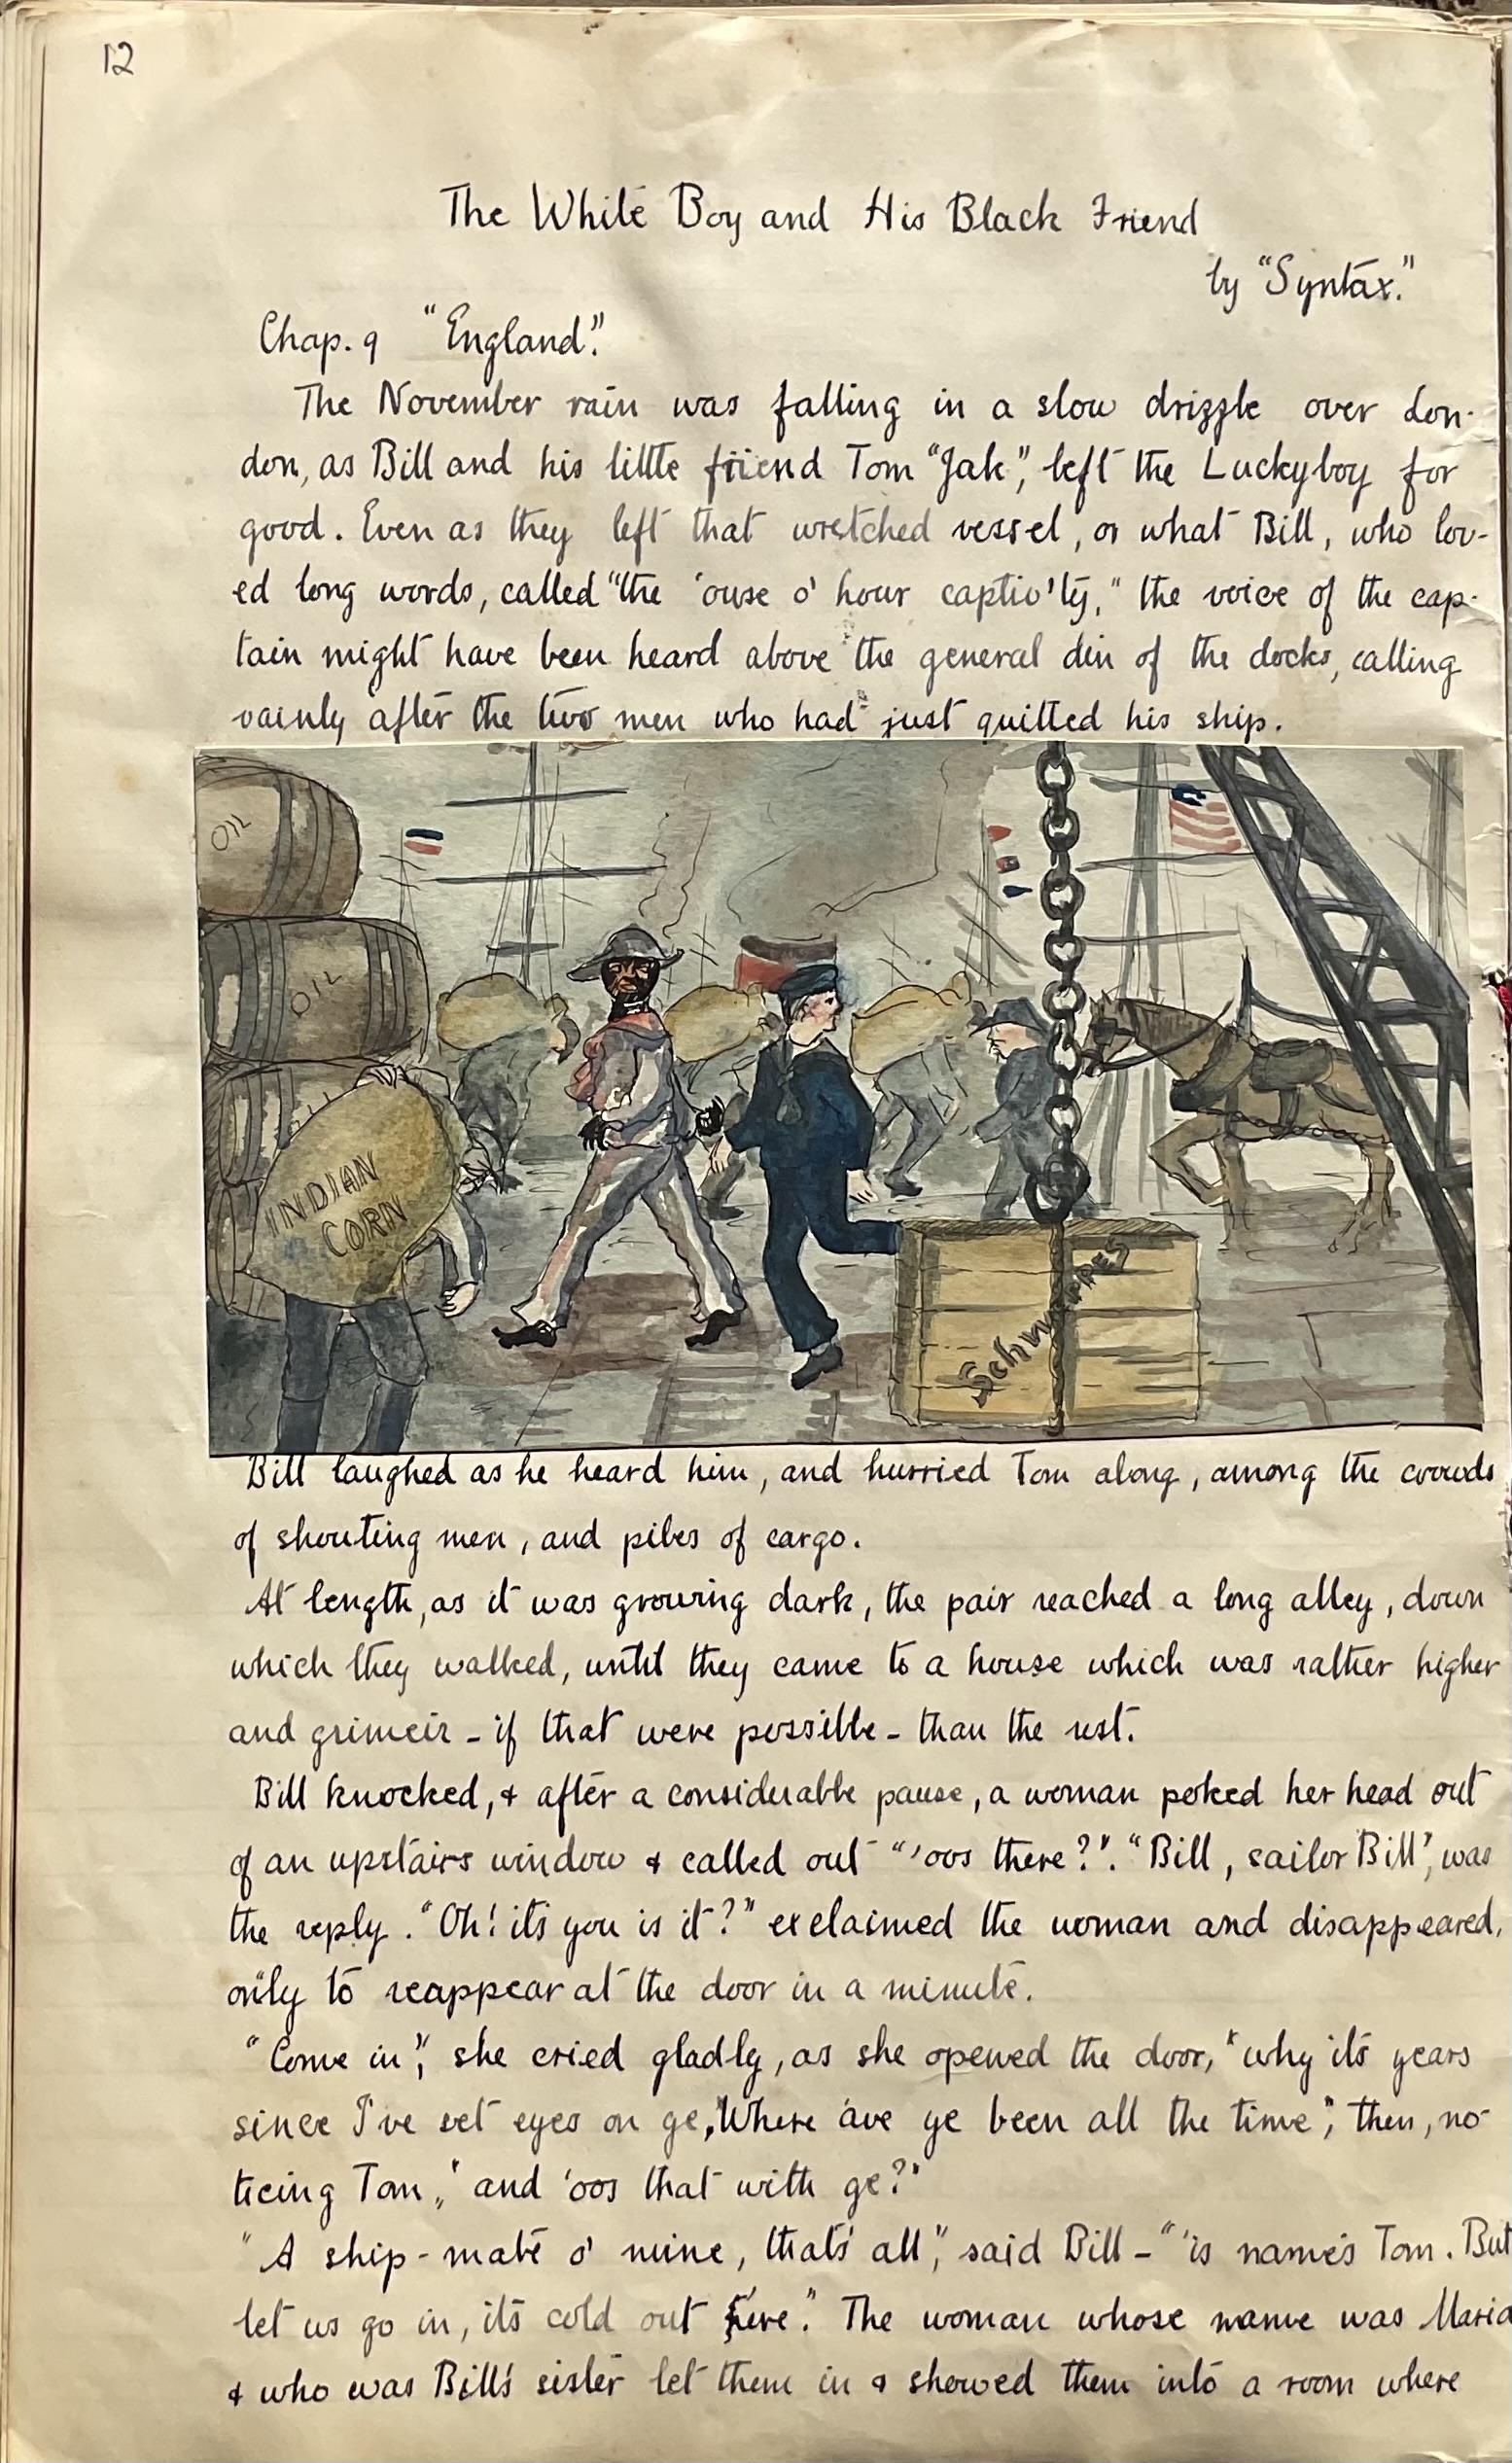 12
The White Boy and His Black Friend
by "Syntax."
Chap. 9 "England".
The November rain was falling in a slow drizzle over Lon-
don, as Bill and his little friend Tom "Jak", left the Luckyboy for
good. Even as they left that wretched vessel, or what Bill, who lov-
ed long words, called "the 'ouse o' hour captiv'ty," the voice of the cap-
tain might have been heard above the general din of the docks, calling
vainly after the two men who had just quitted his ship.
OIL
OIL
INDIAN
CORN
Bill laughed as he heard him, and hurried Tom along, among the crowds
of shouting men, and piles of cargo.
At length, as it was growing dark, the pair reached a long alley, down
which they walked, until they came to a house which was rather higher
and grimeir - if that were possible - than the rest.
Bill knocked, & after a considerable pause, a woman poked her head out
of an upstairs window & called out "'oos there?". "Bill, sailor Bill", was
the reply. "Oh! its you is it?" exclaimed the woman and disappeared,
only to reappear at the door in a minute.
"Come in", she cried gladly, as she opened the door, "why its years
since I've set eyes on ye, "Where 'ave ye been all the time", then, no-
ticing Tom, "and 'oos that with ye?"
"A ship-mate o' mine, that's all," said Bill - "'is name's Tom. But
let us go in, its cold out 'ere." The woman whose name was Maria
& who was Bill's sister let them in & showed them into a room where